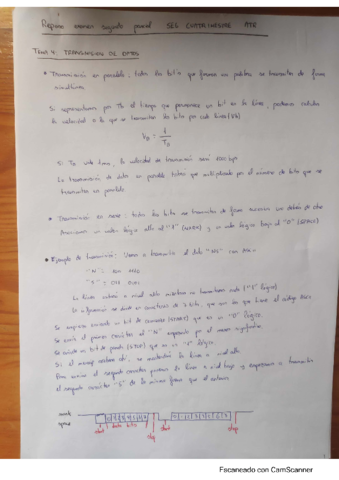 Repaso examen segundo parcial SEG CUATRIMESTRE ATC
TEMA 4. TRANSMISIÓN DE DATOS
• Transmisión en paralelo: todos los bits que forman una palabra se transmiten de forma
simultánea.
Si representamos por Tb el tiempo que permanece un bit en la línea, podemos calcular
la velocidad a la que se transmiten los bits por cada línea (Vb)
Vb = 1 / Tb
Si Tb vale 1 ms, la velocidad de transmisión será 1000 bps
La transmisión de datos en paralelo habrá que multiplicarlo por el número de bits que se
transmiten en paralelo
• Transmisión en serie: todos los bits se transmiten de forma sucesiva uno detrás de otro
Asociamos un valor lógico alto al "1" (MARK) y un valor lógico bajo al "0" (SPACE)
• Ejemplo de transmisión: Vamos a transmitir el dato "NS" con
"N":
La línea estará a nivel alto mientras no transmitamos nada ("1" lógico)
La información se divide en caracteres de 7 bits, que son los que tiene el código
Se empieza enviando un bit de comienzo (START) que es un "0" lógico.
Se envía el primer carácter el "N" empezando por el menos significativo.
Se envía un bit de parada (STOP) que es un "1" lógico.
Si el mensaje acabara ahí, se mantendría la línea a nivel alto.
Para enviar el segundo carácter ponemos la línea a nivel bajo y empezamos a transmitir
el segundo carácter "S" de la misma forma que el anterior.
mark
space
start datos bits stop start stop
Escaneado con CamScanner